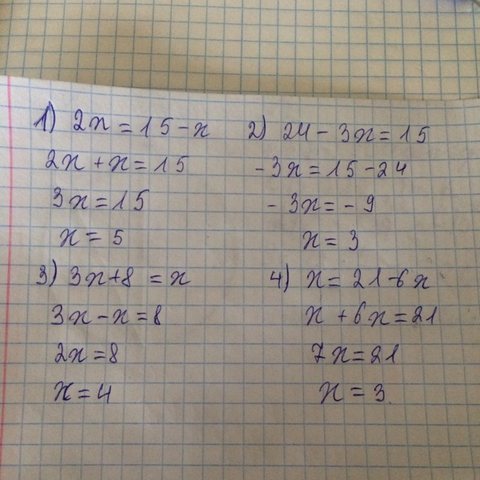 1) 2x = 15 - x
2x + x = 15
3x = 15
x = 5
2) 24 - 3x = 15
- 3x = 15 - 24
- 3x = - 9
x = 3
3) 3x + 8 = x
3x - x = 8
2x = 8
x = 4
4) x = 21 - 6x
x + 6x = 21
7x = 21
x = 3.